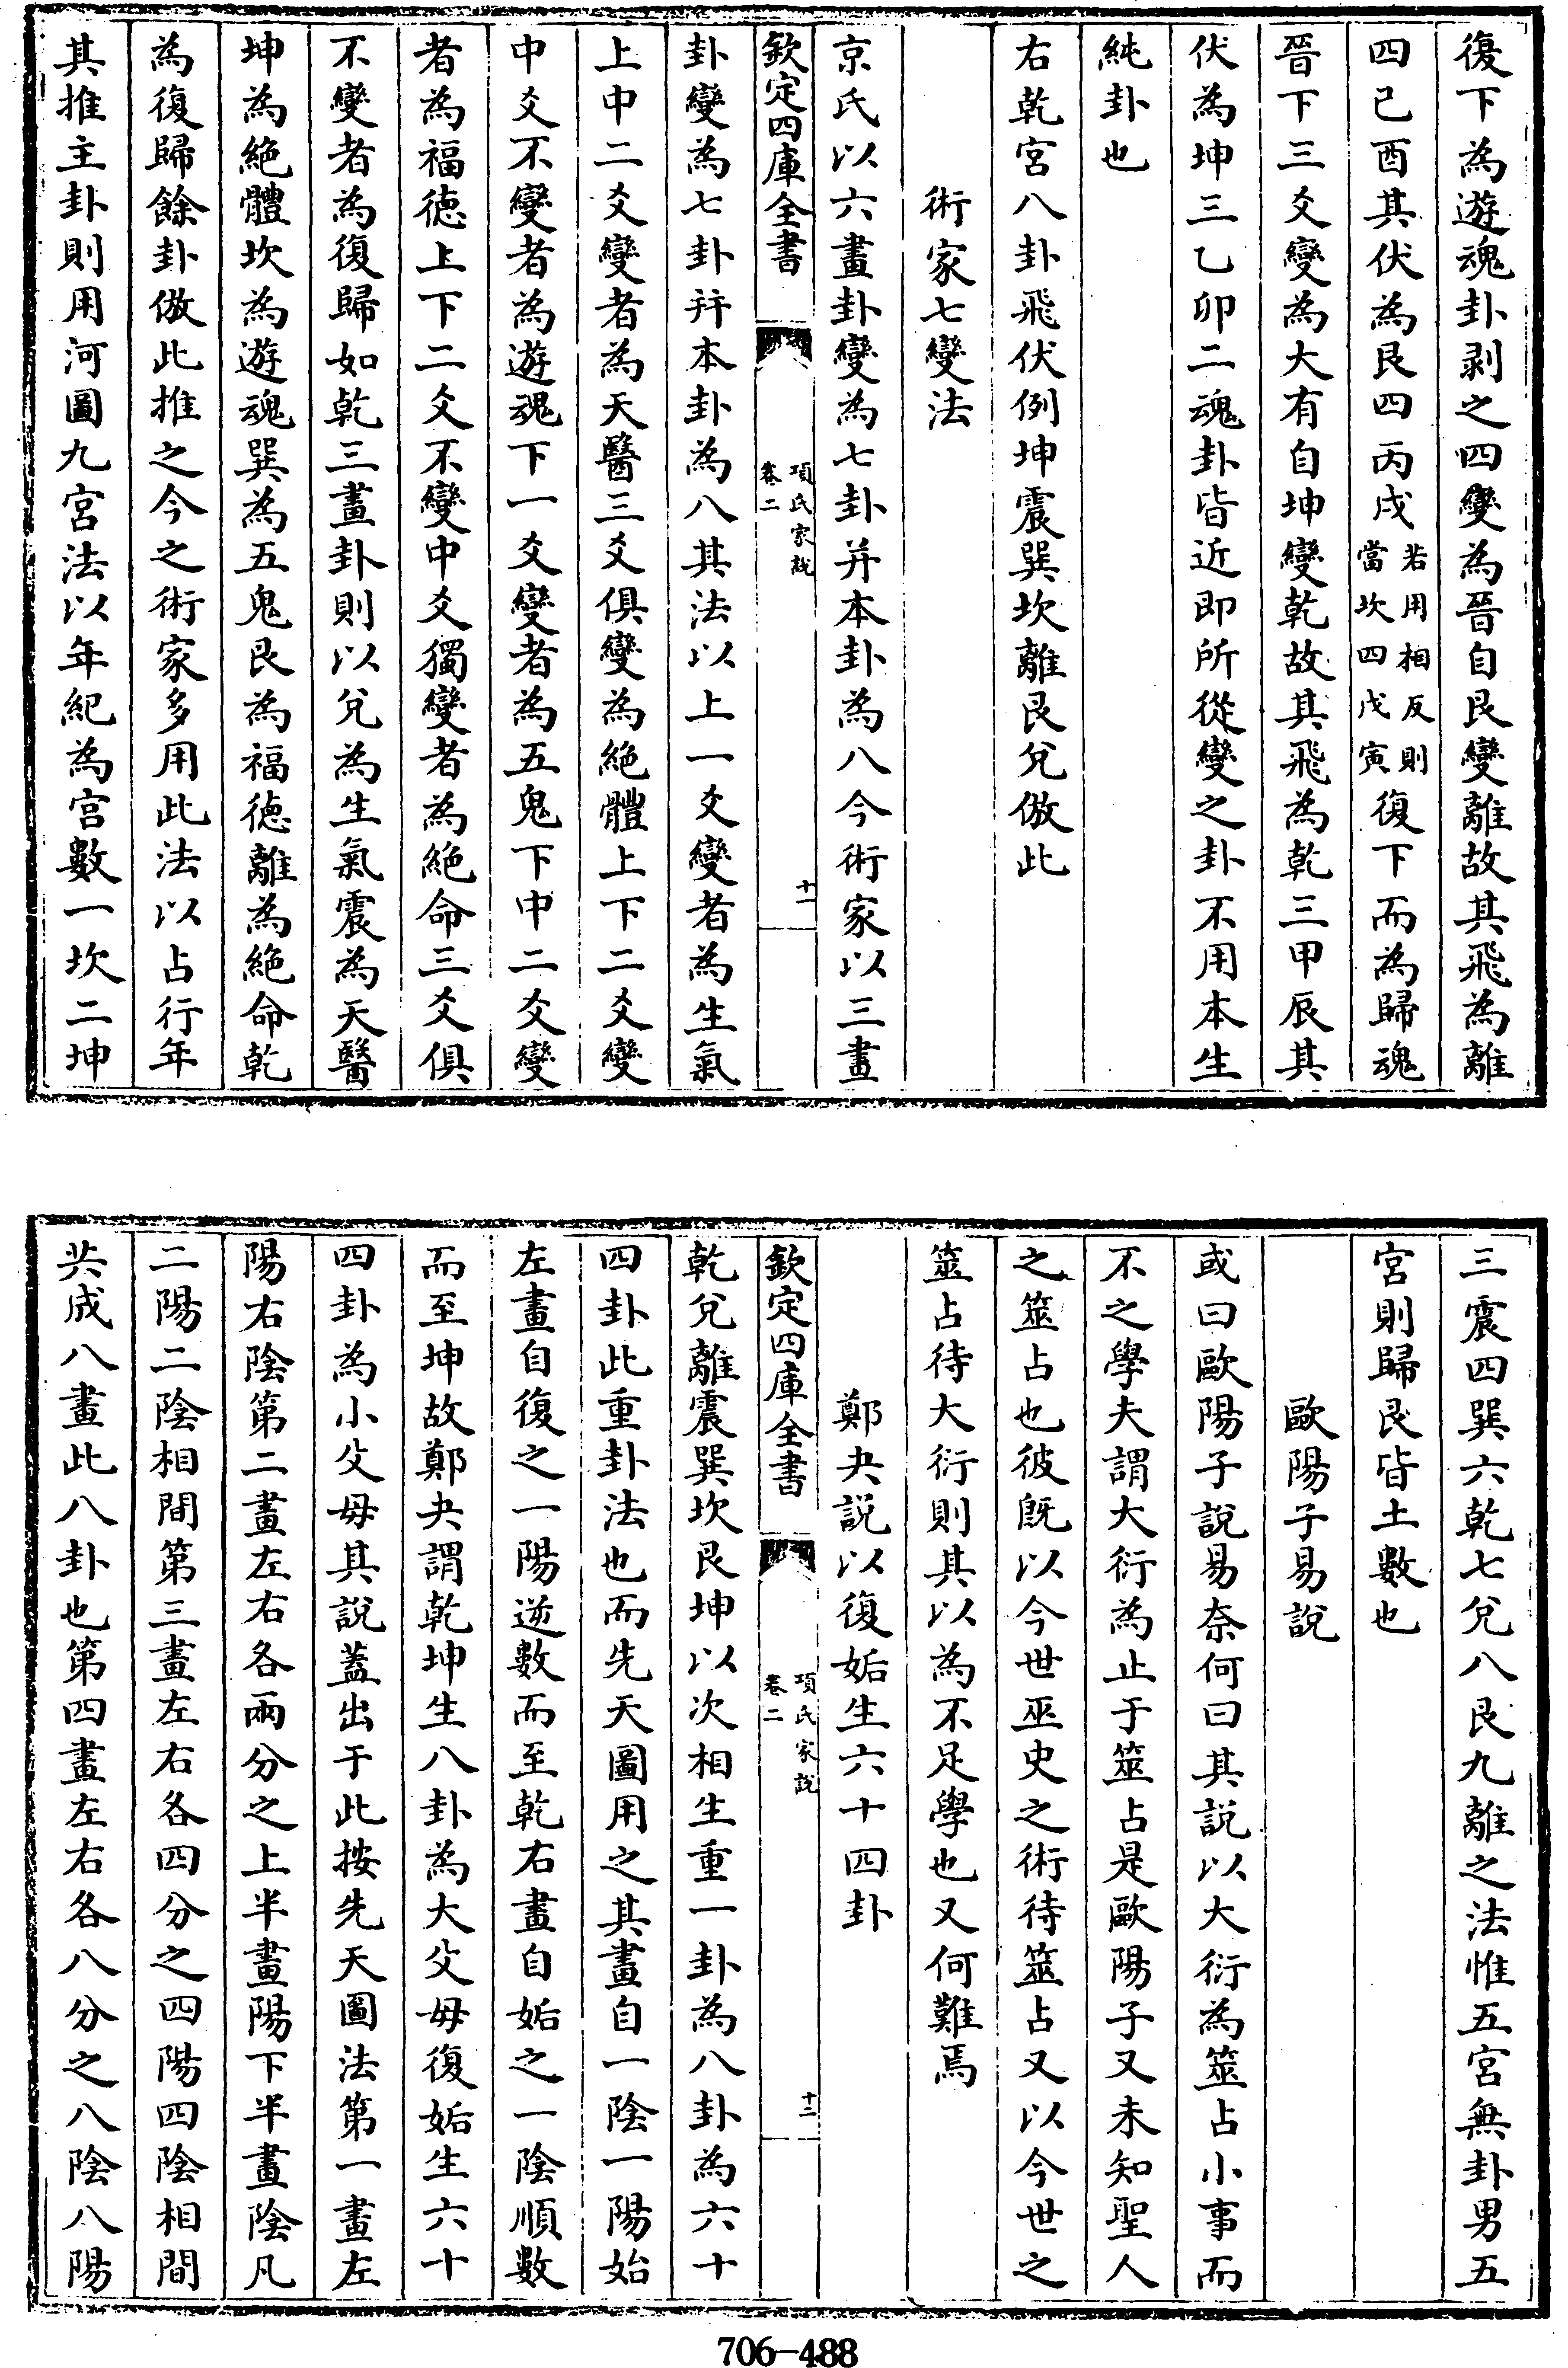 復下為遊魂卦剥之四變為晉自艮變離故其飛為離
四己酉其伏為艮四丙戌若用相反則當坎四戊寅復下而為歸魂
晉下三爻變為大有自坤變乾故其飛為乾三甲辰其
伏為坤三乙卯二魂卦皆近即所從變之卦不用本生
純卦也
右乾宮八卦飛伏例坤震巽坎離艮兌倣此
術家七變法
京氏以六畫卦變為七卦并本卦為八今術家以三畫
欽定四庫全書
項氏家說
卷二
十一
卦變為七卦并本卦為八其法以上一爻變者為生氣
上中二爻變者為天醫三爻俱變為絕體上下二爻變
中爻不變者為遊魂下一爻變者為五鬼下中二爻變
者為福德上下二爻不變中爻獨變者為絕命三爻俱
不變者為復歸如乾三畫卦則以兌為生氣震為天醫
坤為絕體坎為遊魂巽為五鬼艮為福德離為絕命乾
為復歸餘卦倣此推之今之術家多用此法以占行年
其推主卦則用河圖九宮法以年紀為宮數一坎二坤
三震四巽六乾七兌八艮九離之法惟五宮無卦男五
宮則歸艮皆土數也
歐陽子易說
或曰歐陽子說易奈何曰其說以大衍為筮占小事而
不之學夫謂大衍為止于筮占是歐陽子又未知聖人
之筮占也彼既以今世巫史之術待筮占又以今世之
筮占待大衍則其以為不足學也又何難焉
鄭夬說以復姤生六十四卦
欽定四庫全書
項氏家說
卷二
十二
乾兌離震巽坎艮坤以次相生重一卦為八卦為六十
四卦此重卦法也而先天圖用之其畫自一陰一陽始
左畫自復之一陽逆數而至乾右畫自姤之一陰順數
而至坤故鄭夬謂乾坤生八卦為大父母復姤生六十
四卦為小父母其說蓋出于此按先天圖法第一畫左
陽右陰第二畫左右各兩分之上半畫陽下半畫陰凡
二陽二陰相間第三畫左右各四分之四陽四陰相間
共成八畫此八卦也第四畫左右各八分之八陰八陽
706-488